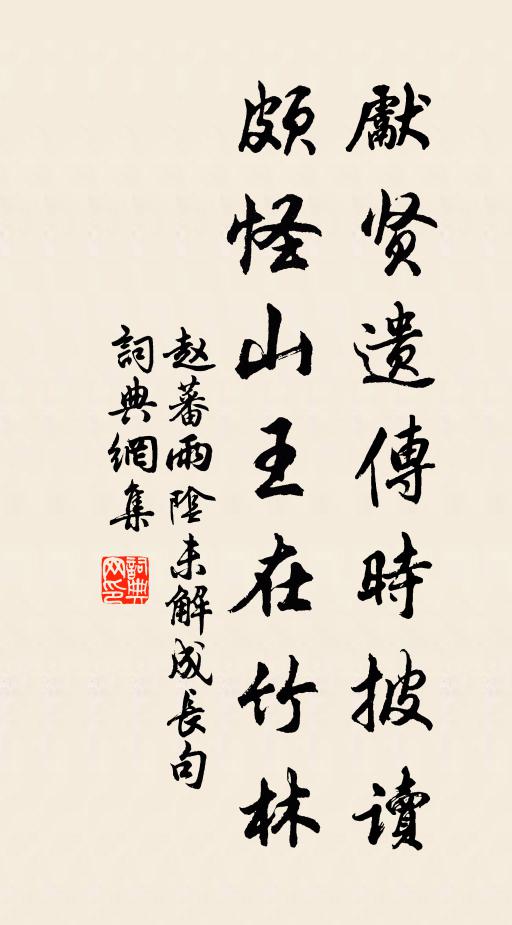 獻贤遗傳時披读
頗怪山王在竹林
赵蕃雨陰未解成長句
詞典網集
詞典网印